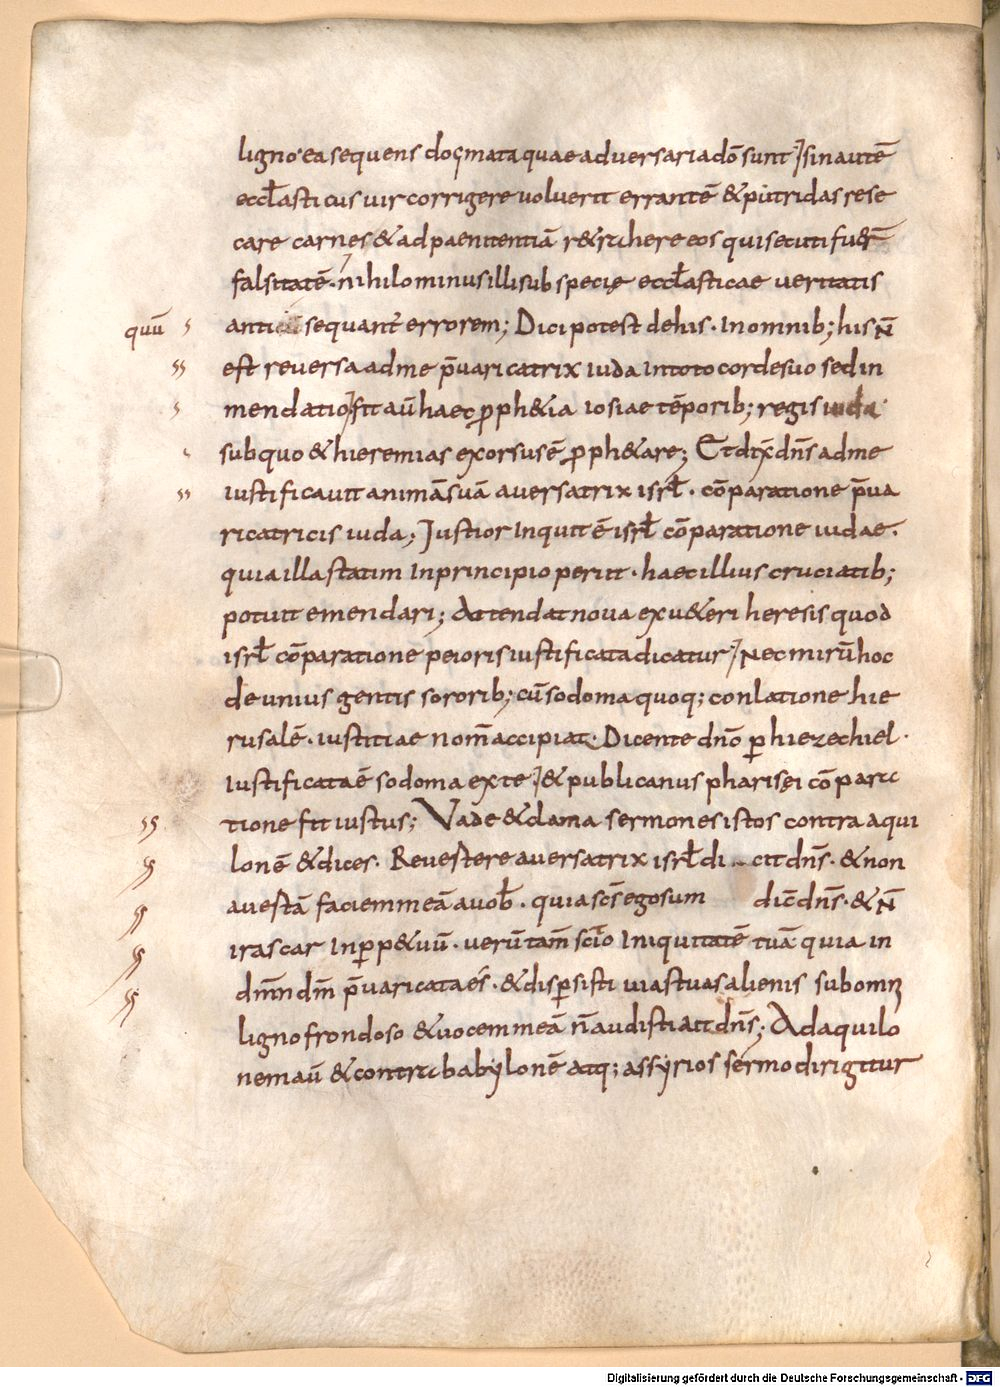 ligno· ea sequens docmata quae adversaria dō sunt sin autē
eccl̄asticus uir corrigere uoluerit errantē & putridas rese
care carnes & ad paenitentiā r&rahere eos qui secuti fuer̄
falsitatē· nihilominus illi sub specię eccl̄asticae veritatis
quū anti sequant errorem; Dici potest de his· In omnib; his n̄
est reversa ad me p̄varicatrix iuda In toto corde suo sed in
mendatio fit aū haec p̱ph&ia iosiae tēporib; regis iuda
sub quo & hieremias exorsus ē p̱ph&are; Et dix̄ dn̄s ad me
iustificauit animā suā aversatrix isrl̄· cōparatione p̄va
ricatricis iuda; Iustior Inquit ē isrl̄ cōparatione iudae·
quia illa statim In principio periit· haec illius cruciatib;
potuit emendari; Attendat nova ex u&eri heresis quod
isrl̄ cōparatione peioris iustificata dicatur Nec mirū hoc
de unius gentis sororib; cū sodoma quoq; conlatione hie
rusalē· iustitiae nom̄ accipiat· Dicente dn̄o p̱ hiezechiel·
Iustificata ē sodoma ex te & publicanus pharisęi cōpara
tione fit iustus; Vade & clama sermones istos contra aqui
lonē & dices· Revertere aversatrix isrl̄ di cit dn̄s· & non
avertā faciem meā a uob̄· quia sc̄s ego sum dic̄ dn̄s· & n̄
irascar In p̱p&uū· verūtam̄ scito Iniquitatē tuā quia in
dn̄m dm̄ p̄varicata es· & disp̱sisti uias tuas alienis sub omni
ligno frondoso & uocem meā n̄ audisti ait dn̄s; Ad aquilo
nem aū & contra babylonē atq; assyrios sermo dirigitur
Digitalisierung gefördert durch die Deutsche Forschungsgemeinschaft - DFG